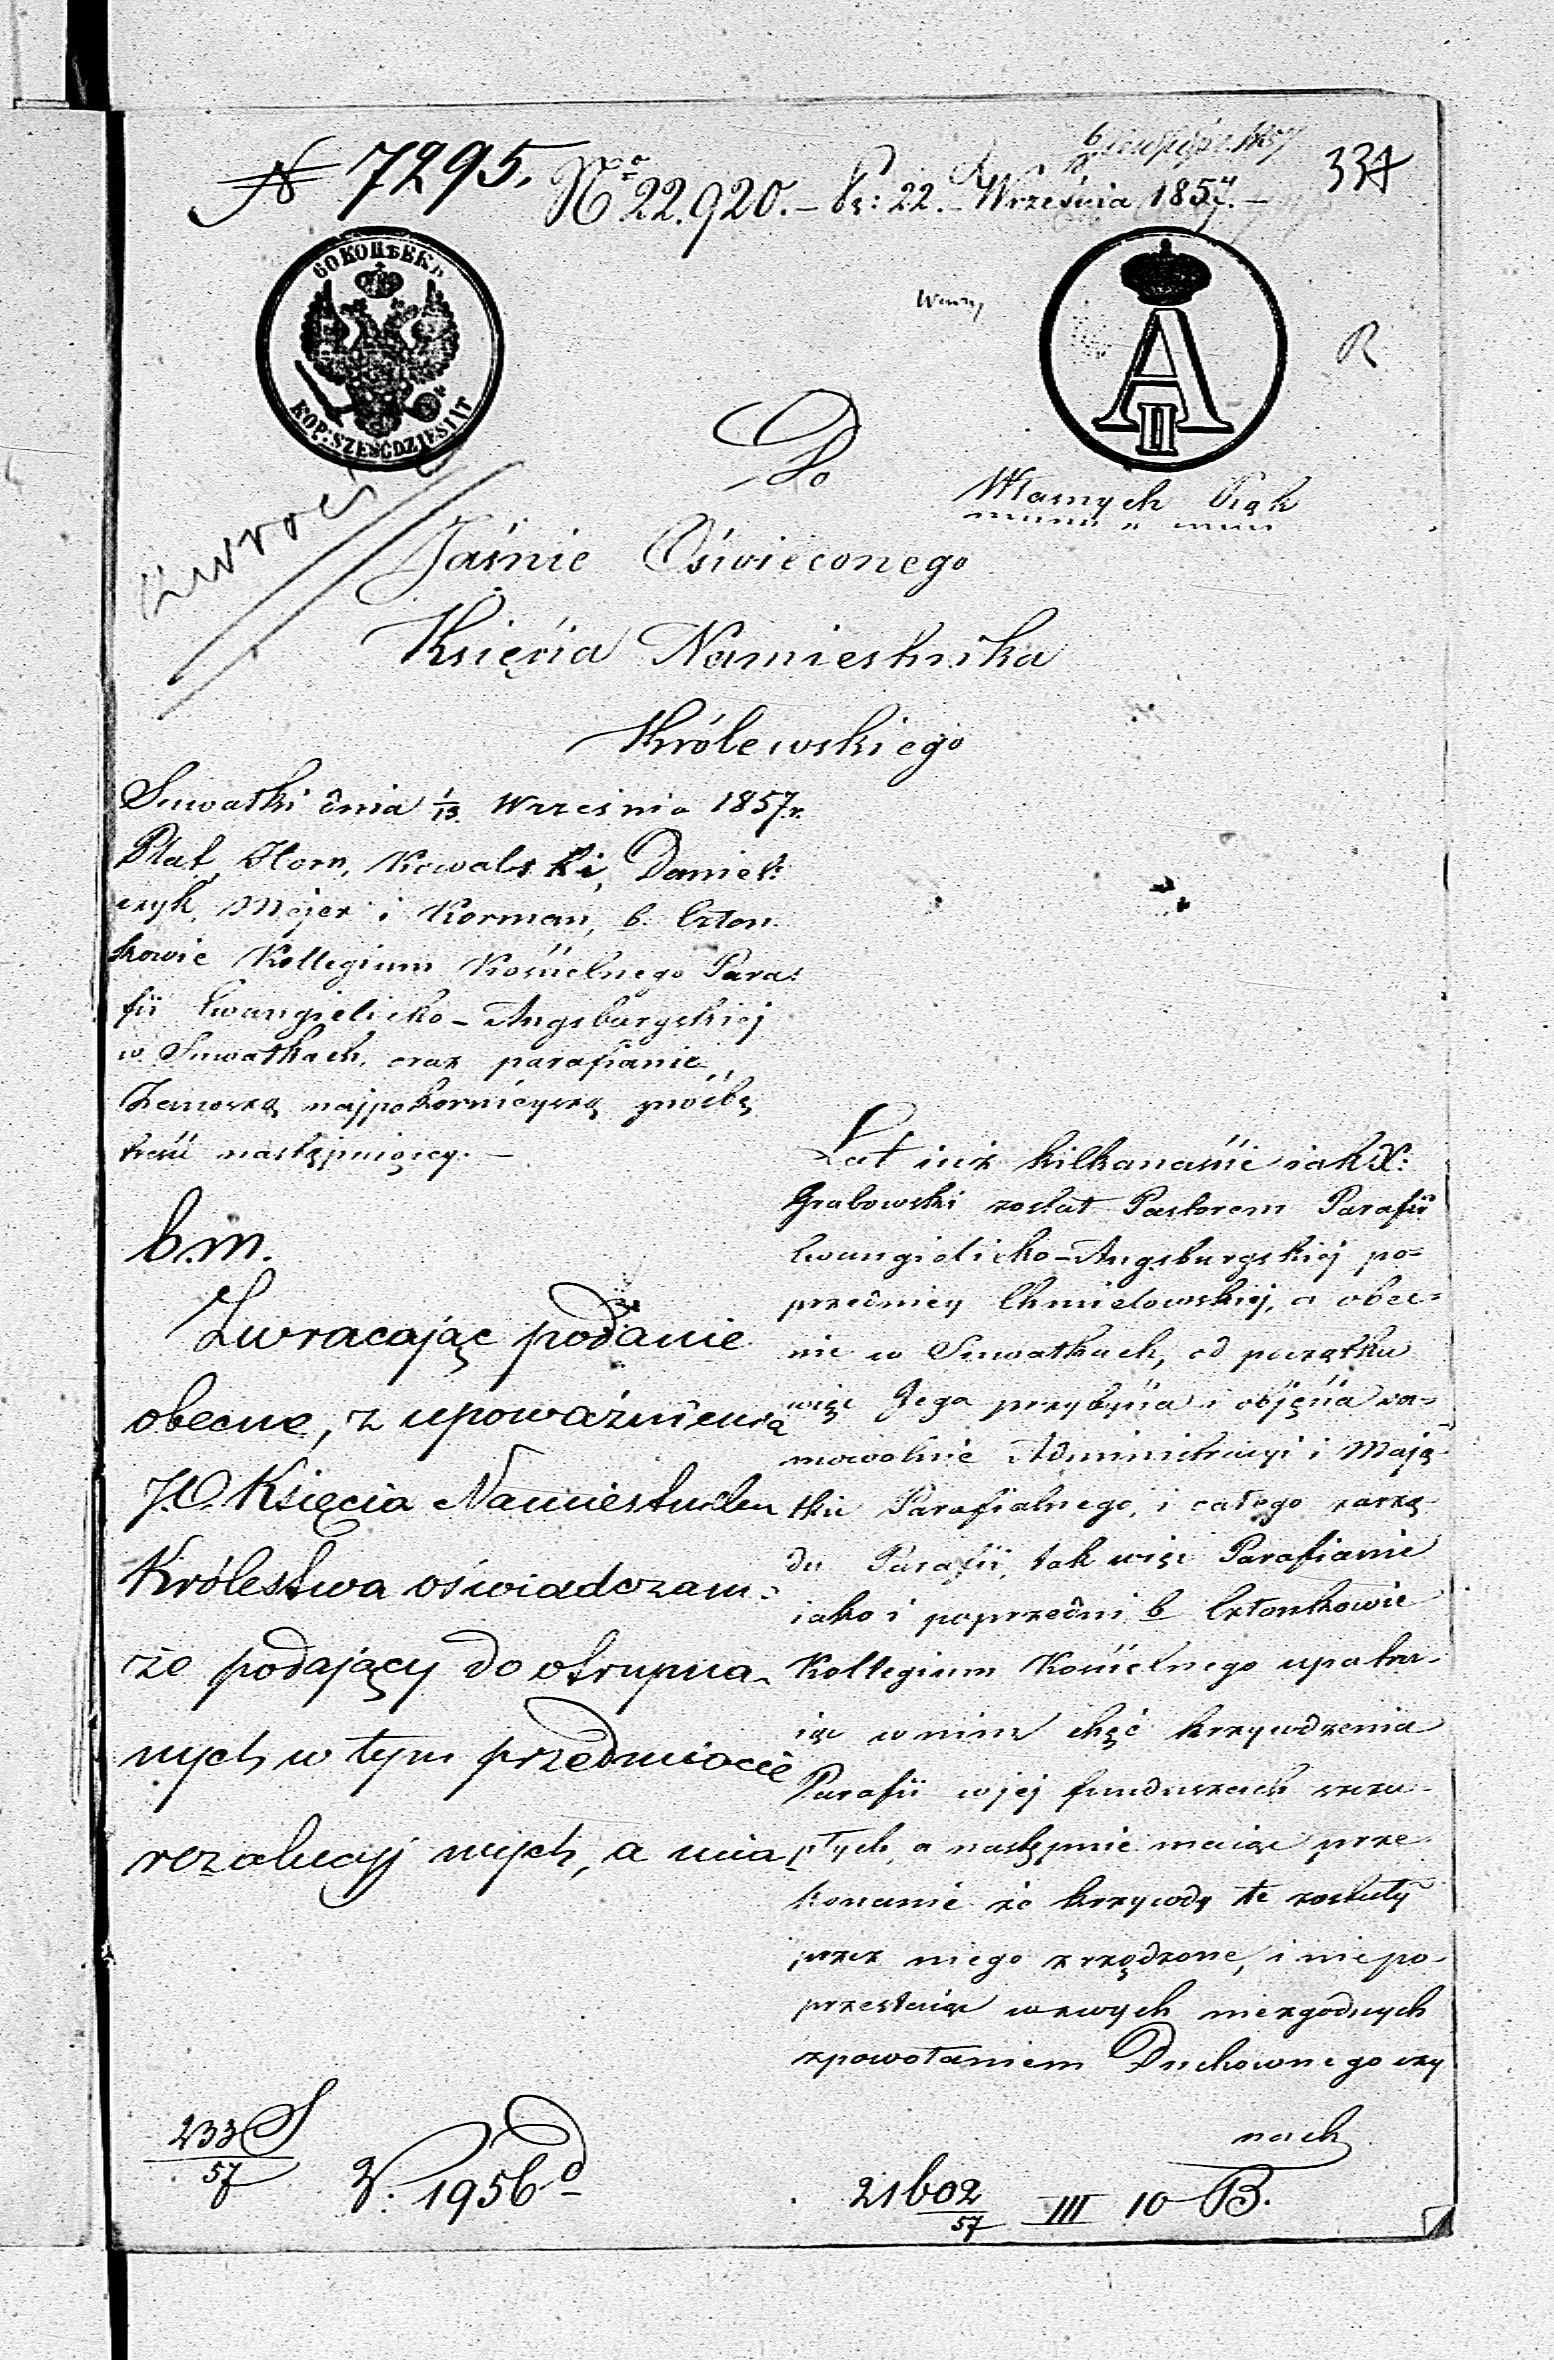 № 7295. № 22.920. – 22. Września 1857. – 334
60 КОПѢЕКЪ
KOP: SZEŚĆDZIESIĄT
A II
R
zwrócić
Do
Własnych Rąk
Jaśnie Oświeconego
Księcia Namiestnika
Królewskiego
Suwałki dnia 1/13. Września 1857 r.
Plat, Horn, Kowalski, Daniel:
czyk, Mejer i Korman, b. Człon
kowie Kollegium Kościelnego Para:
fii Ewangielicko-Augsburgskiej
w Suwałkach, oraz parafianie
Zanoszą najpokorniejszą prośbę
treści następuiący. –
b. m.
Zwracając podanie
obecne, z upoważnienia
J.O. Księcia Namiestnika
Królestwa oświadczam:
że podający do otrzyma-
nych w tym przedmiocie
rezolucyj
Lat iuż kilkanaście iak X:
Grabowski został Pastorem Parafii
Ewangielicko-Augsburgskiej po=
przedniey Chmielowskiej, a obec=
nie w Suwałkach, od początku
więc Jego przybycia i objęcia sa=
mowolnie Administracyi i Mają-
tku Parafialnego, i całego zarzą-
du Parafii, tak więc Parafianie
iako i poprzedni b Członkowie
Kollegium Kościelnego upatru-
iąc w nim chęć krzywdzenia
Parafii w jej funduszach szczu-
płych, a następnie maiąc prze
konanie że krzywdy te zostały
przez niego zrządzone, i niepo-
przestaiąc w swych niezgodnych
zpowołaniem Duchownego czy
nach
233 S
57
1956
21602
57
III 10 B.